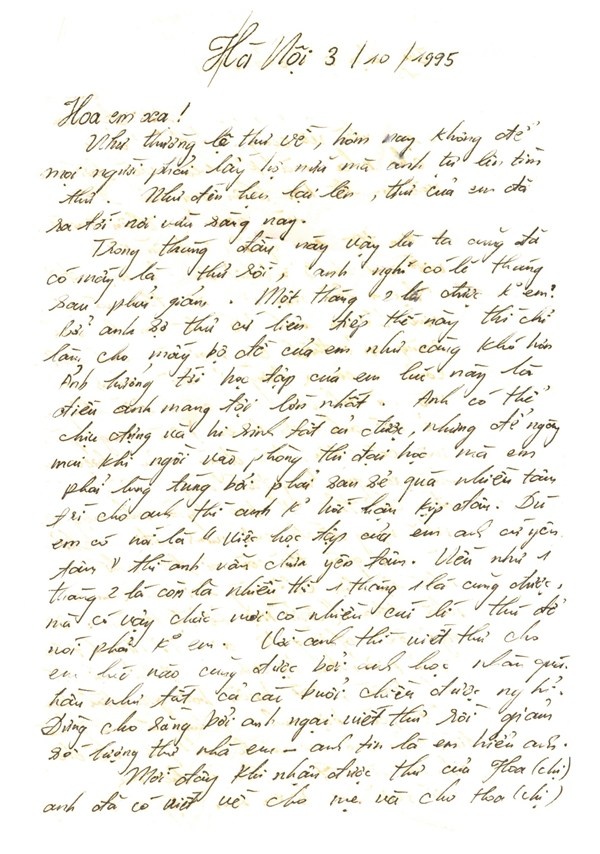 Hà Nội 3/10/1995
Hoa em xa!
Như thường lệ thư về, hôm nay không để
mọi người phải lấy hộ nữa mà anh tự lên tìm
thư. Như đến hẹn lại lên, thư của em đã
ra tới nơi vào sáng nay.
Trong tháng đầu này vậy là ta cũng đã
có mấy lá thư rồi, anh nghĩ có lẽ tháng
sau phải giảm. Một tháng 2 lá được k° em?
Bởi anh sợ thư cứ liên tiếp thế này thì chỉ
làm cho mấy bộ đề của em như càng khó hơn
Ảnh hưởng tới học tập của em lúc này là
điều anh mang tội lớn nhất. Anh có thể
chịu đựng và hi sinh tất cả được, nhưng để ngày
mai khi ngồi vào phòng thi đại học mà em
phải lúng túng bởi phải san sẻ quá nhiều tâm
trí cho anh thì anh k° hối hận kịp đâu. Dù
em có nói là "việc học tập của em anh cứ yên
tâm" thì anh vẫn chưa yên tâm. Nếu như 1
tháng 2 lá còn là nhiều thì 1 tháng 1 lá cũng được,
mà có vậy chắc mới có nhiều cái li thú để
nói phải k° em. Với anh thì viết thư cho
em lúc nào cũng được bởi anh học nhàn quá.
hầu như tất cả các buổi chiều được nghỉ.
Đừng cho rằng bởi anh ngại viết thư rồi giảm
số lượng thư nha em – anh tin là em hiểu anh.
Mới đây khi nhận được thư của Hoa (chị)
anh đã có viết về cho mẹ và cho Hoa (chị)